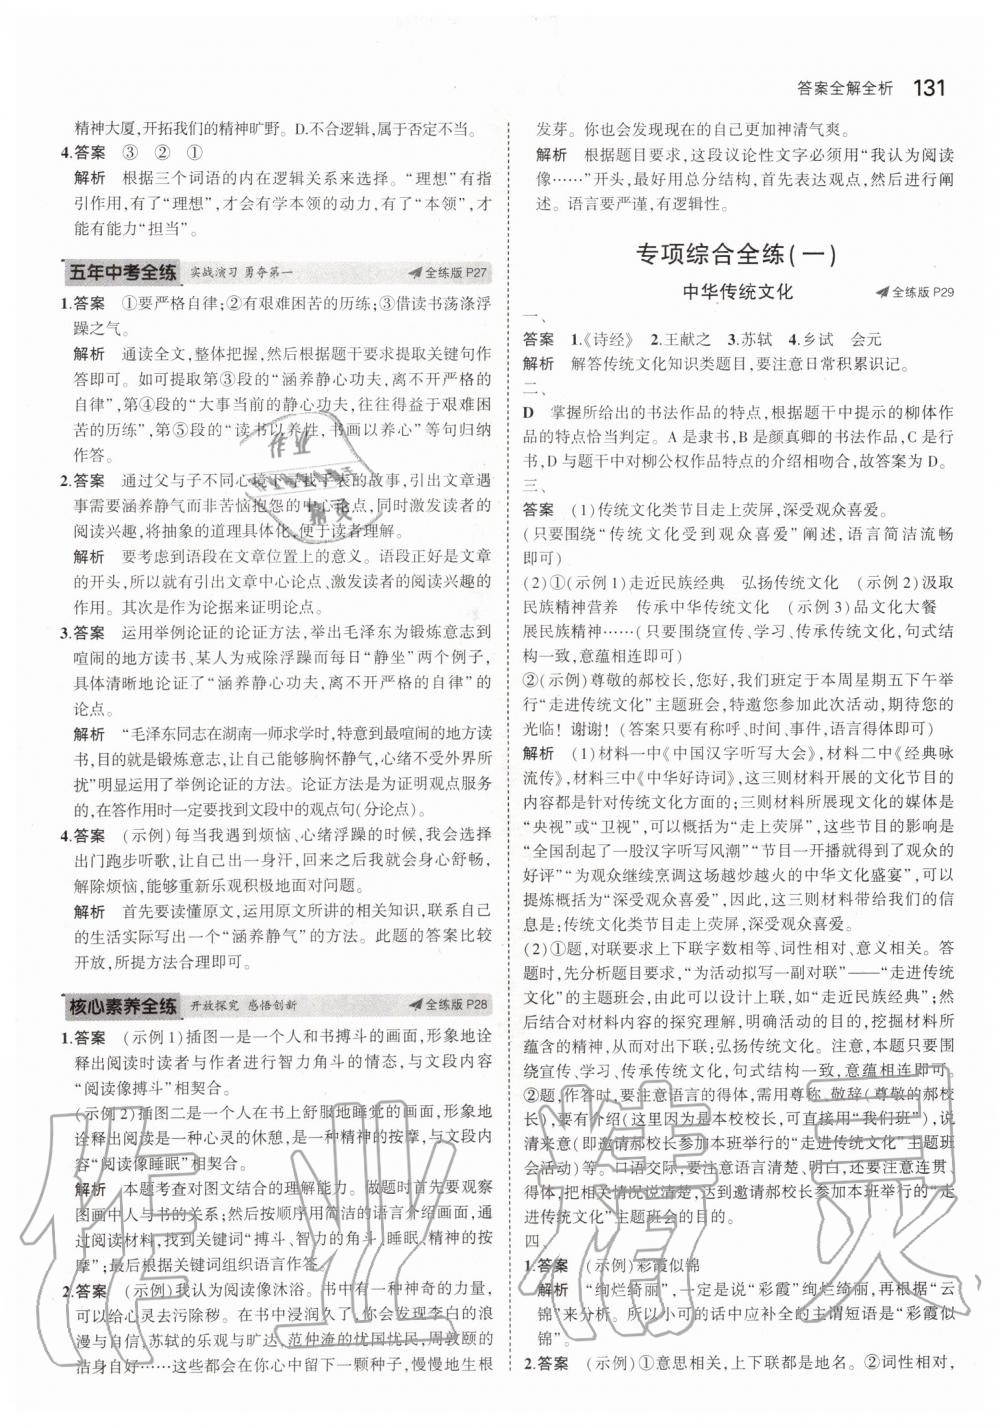 答案全解全析 131
精神大厦,开拓我们的精神旷野。D.不合逻辑,属于否定不当。
4.答案 ③ ② ①
解析 根据三个词语的内在逻辑关系来选择。“理想”有指
引作用,有了“理想”,才会有学本领的动力,有了“本领”,才
能有能力“担当”。
五年中考全练 实战演习 勇夺第一 全练版 P27
1.答案 ①要严格自律;②有艰难困苦的历练;③借读书荡涤浮
躁之气。
解析 通读全文,整体把握,然后根据题干要求提取关键句作
答即可。如可提取第③段的“涵养静心功夫,离不开严格的
自律”,第④段的“大事当前的静心功夫,往往得益于艰难困
苦的历练”,第⑤段的“读书以养性,书画以养心”等句归纳
作答。
2.答案 通过父与子不同心境下寻找手表的故事,引出文章遇
事需要涵养静气而非苦恼抱怨的中心论点,以激发读者的
阅读兴趣,将抽象的道理具体化,便于读者理解。
解析 要考虑到语段在文章位置上的意义。语段正好是文章
的开头,所以就有引出文章中心论点、激发读者的阅读兴趣的
作用。其次是作为论据来证明论点。
3.答案 运用举例论证的论证方法,举出毛泽东为锻炼意志到
喧闹的地方读书、某人为戒除浮躁而每日“静坐”两个例子,
具体清晰地论证了“涵养静心功夫,离不开严格的自律”的
论点。
解析 “毛泽东同志在湖南一师求学时,特意到最喧闹的地方读
书,目的就是锻炼意志,让自己能够胸怀静气,心绪不受外界所
扰”明显运用了举例论证的方法。论证方法是为证明观点服务
的,在答作用时一定要找到文段中的观点句(分论点)。
4.答案 (示例)每当我遇到烦恼、心绪浮躁的时候,我会选择
出门跑步听歌,让自己出一身汗,回来时我就会身心舒畅,
解除烦恼,能够重新乐观积极地面对问题。
解析 首先要读懂原文,运用原文所讲的相关知识,联系自己
的生活实际写出一个“涵养静气”的方法。此题的答案比较
开放,所写方法合理即可。
核心素养全练 开放探究 感悟创新 全练版 P28
1.答案 (示例1)插图一是一个人和书搏斗的画面,形象地诠
释出阅读时读者与作者进行智力角斗的情态,与文段内容
“阅读像搏斗”相契合。
(示例2)插图二是一个人在书上舒服地睡觉的画面,形象地
诠释出阅读是一种心灵的休憩,是一种精神的按摩,与文段内
容“阅读像睡眠”相契合。
解析 本题考查对图文结合的理解能力。做题时首先要观察
图画中人与书的关系;然后按顺序用简洁的语言介绍画面,通
过阅读材料,找到关键词“搏斗、智力的角斗、睡眠、精神的按
摩”;最后根据关键词组织语言作答。
2.答案 (示例)我认为阅读像沐浴。书中有一种神奇的力量,
可以给心灵去污除秽。在书中浸润久了,你会发现李白的浪
漫与自信、苏轼的乐观与旷达、范仲淹的忧国忧民、周敦颐的
洁身自好……这些都会在你心中留下一颗种子,慢慢地生根
发芽。你也会发现现在的自己更加神清气爽。
解析 根据题目要求,这段议论性文字必须用“我认为阅读
像……”开头,最好用总分结构,首先表达观点,然后进行阐
述。语言要严谨,有逻辑性。
专项综合全练(一)
中华传统文化 全练版 P29
一、
答案 1.《诗经》 2.王献之 3.苏轼 4.乡试 会元
解析 解答传统文化知识类题目,要注意日常积累识记。
二、
D 掌握所给出的书法作品的特点,根据题干中提示的柳体作
品的特点恰当判定。A是隶书,B是颜真卿的书法作品,C是行
书,D与题干中对柳公权作品特点的介绍相吻合,故答案为D。
三、
答案 (1)传统文化类节目走上荧屏,深受观众喜爱。
(只要围绕“传统文化受到观众喜爱”阐述,语言简洁流畅
即可)
(2)①(示例1)走近民族经典 弘扬传统文化 (示例2)汲取
民族精神营养 传承中华传统文化 (示例3)品文化大餐
展民族精神……(只要围绕宣传、学习、传承传统文化,句式结
构一致,意蕴相连即可)
②(示例)尊敬的郝校长,您好,我们班定于本周星期五下午举
行“走进传统文化”主题班会,特邀您参加此次活动,期待您的
光临!谢谢!(答案只要有称呼、时间、事件,语言得体即可)
解析 (1)材料一中《中国汉字听写大会》,材料二中《经典咏
流传》,材料三中《中华好诗词》,这三则材料开展的文化节目的
内容都是针对传统文化方面的;三则材料所展现文化的媒体是
“央视”或“卫视”,可以概括为“走上荧屏”,这些节目的观众反映是
“全国刮起了一股汉字听写风潮”“节目一开播就得到了观众的
好评”“为观众继续烹调这场越炒越火的中华文化盛宴”,可以
提炼概括为“深受观众喜爱”,因此,这三则材料带给我们的信
息是:传统文化类节目走上荧屏,深受观众喜爱。
(2)①题,对联要求上下联字数相等、词性相对、意义相关。答
题时,先分析题目要求,“为活动拟写一副对联”——“走进传统
文化”的主题班会,由此可以设计上联,如“走近民族经典”;然
后结合对材料内容的探究理解,明确活动的目的,挖掘材料所
蕴含的精神,从而写出下联:弘扬传统文化。注意,本题只要围绕
宣传、学习、传承传统文化,句式结构一致、意蕴相连即可。
②题,作答时,要注意语言的得体,需用尊称、敬辞(尊敬的郝校
长),要有介绍(这里因为是本校校长,可直接用“我们班”),说
清来意(即邀请郝校长参加本班举行的“走进传统文化”主题班
会活动等)。口语交际,要注意语言清楚、明白,还要注意连贯、
得体,把相关情况说清楚,达到邀请郝校长参加本班举行的“走
进传统文化”主题班会的目的。
四、
1.答案 (示例)彩霞似锦
解析 “绚烂绮丽”,一定是说“彩霞”绚烂绮丽,再根据“云
锦”来分析。所以小可的话中应补全的主谓短语是“彩霞似
锦”。
2.答案 (示例)①意思相关,上下联都是地名。②词性相对,
作业精灵